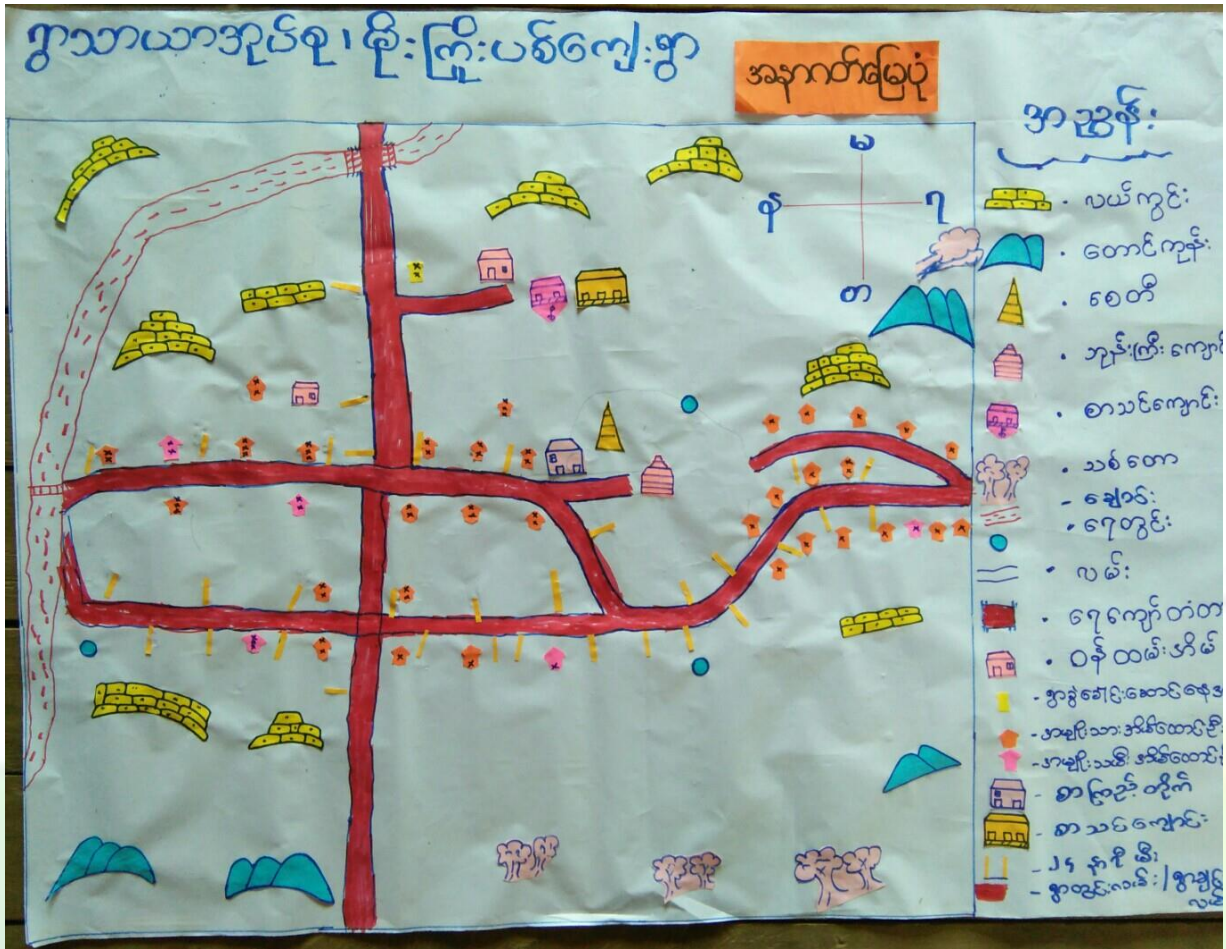 ရွာသာယာအုပ်စု၊ မိုးကြိုးပစ်ကျေးရွာ
အနာဂတ်မြေပုံ
အညွှန်း
မ
န
ရ
တ
လယ်ကွင်း
တောင်ကုန်း
စေတီ
ဘုန်းကြီးကျောင်း
စာသင်ကျောင်း
သစ်တော
ချောင်း
ရေတွင်း
လမ်း
ရေကျော်တံတာ
ဝန်ထမ်းအိမ်
အမျိုးသားအိမ်ထောင်ဦး
အမျိုးသမီးအိမ်ထောင်
စာကြည့်တိုက်
စာသင်ကျောင်း
၂၄ နာရီ မီး
ရွာတွင်းလမ်း/ရွာချင်
လမ်